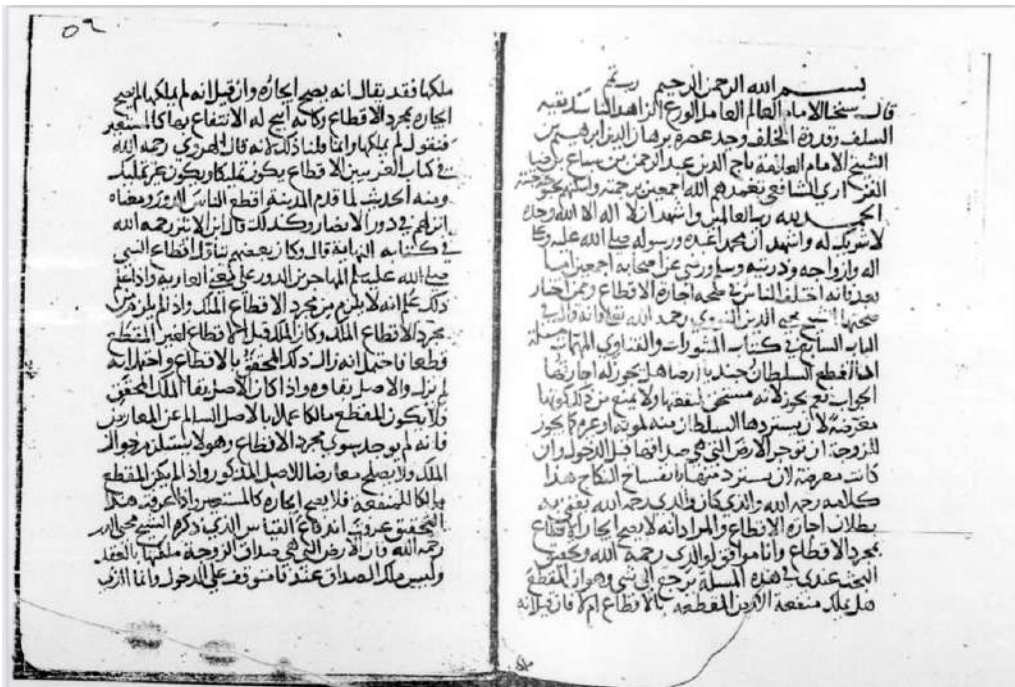 بسم الله الرحمن الرحيم
قال شيخنا الامام العالم العامل الورع الزاهد الناسك بقيه
السلف وقدوة الخلف وحيد عصره برهان الدين ابرهيم بن
الشيخ الامام العلامة تاج الدين عبد الرحمن بن سباع بن ضيا
الفزاري الشافعي تغمدهم الله اجمعين برحمته واسكنهم
الحمد لله رب العالمين واشهد ان لا اله الا الله وحده
لا شريك له واشهد ان محمدا عبده ورسوله صلى الله عليه وعلى
اله وازواجه وذريته وسلم ورضي عن اصحابه اجمعين اما
بعد فانه اختلف الناس في صحه اجارة الاقطاع وممن اختار
صحتها الشيخ محيي الدين النووي رحمه الله تعالى فانه قال في
الباب السابع في كتاب المنثورات والفتاوي المهمات مسئلة
اذا اقطع السلطان جنديا ارضا هل يجوز له اجارتها
الجواب نعم يجوز لانه مستحق لمنفعتها ولا يمنع من ذلك كونها
معرضة لان يستردها السلطان منه لموته او غيره كما يجوز
للزوجة ان توجر الارض التي هي صداقها قبل الدخول وان
كانت معرضة لان يسترد منها بانفساخ النكاح هذا
كلامه رحمه الله والذي كان والدي رحمه الله يفتي به
بطلان اجارة الاقطاع والمراد انه لا يصح ايجار الاقطاع
بمجرد الاقطاع وانا موافق لوالدي رحمه الله وتحقيق
البحث عندي في هذه المسلة يرجع الى شي وهو ان المقطع
هل يملك منفعة الارض المقطعه بالاقطاع ام لا فان قيل انه
٥٢
ملكها فقد يقال انه يصح ايجاره وان قيل انه لم يملكها لم يصح
ايجاره بمجرد الاقطاع وكانه ابيح له الانتفاع بها كالمستعير
فنقول لم يملكها وانما قلنا ذلك لانه قال الهروي رحمه الله
في كتاب الغريبين الاقطاع يكون تمليكا ويكون غير تمليك
ومنه الحديث لما قدم المدينة اقطع الناس الدور ومعناه
انزلهم في دور الانصار وكذلك قال ابن الاثير رحمه الله
في كتابه النهاية قال وكان بعضهم يتاول اقطاع النبي
صلى الله عليه وسلم المهاجرين الدور على معنى العارية واذا
ذلك علم انه لا يلزم من مجرد الاقطاع الملك واذا لم يلزم من
مجرد الاقطاع الملك وكان الملك قبل الاقطاع لغير المقطع
قطعا فاحتمل انه زال ذلك المحقق بالاقطاع واحتمل انه
لم يزل والاصل بقاوه واذا كان الاصل بقا الملك المحقق
فلا يكون المقطع مالكا عملا بالاصل السالم عن المعارض
فانه لم يوجد سوى مجرد الاقطاع وهو لا يستلزم زوال
الملك ولا يصلح معارضا للاصل المذكور واذا لم يكن المقطع
مالكا للمنفعة فلا يصح ايجاره كالمستعير واذا عرفت هذا
التحقيق عرفت اندفاع القياس الذي ذكره الشيخ محيي الدين
رحمه الله فان الارض التي هي صداق الزوجة ملكتها بالعقد
وليس ملك الصداق عندنا متوقف على الدخول وانما الذي